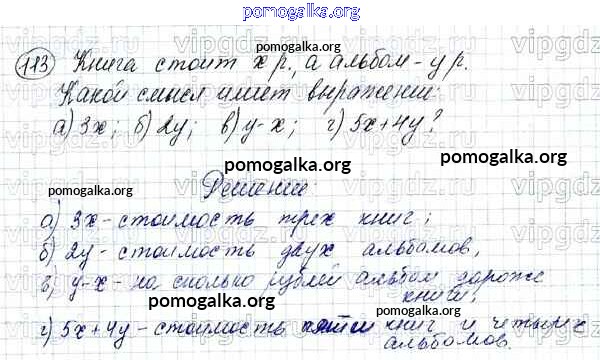 pomogalka.org
113 Книга стоит x р., а альбом - y р.
Какой смысл имеет выражение:
а) 3x; б) 2y; в) y-x; г) 5x+4y?
pomogalka.org
pomogalka.org
Решение:
pomogalka.org
а) 3x - стоимость трех книг;
б) 2y - стоимость двух альбомов,
в) y-x - на сколько рублей альбом дороже
книги;
pomogalka.org
pomogalka.org
г) 5x+4y - стоимость пяти книг и четырех
альбомов.